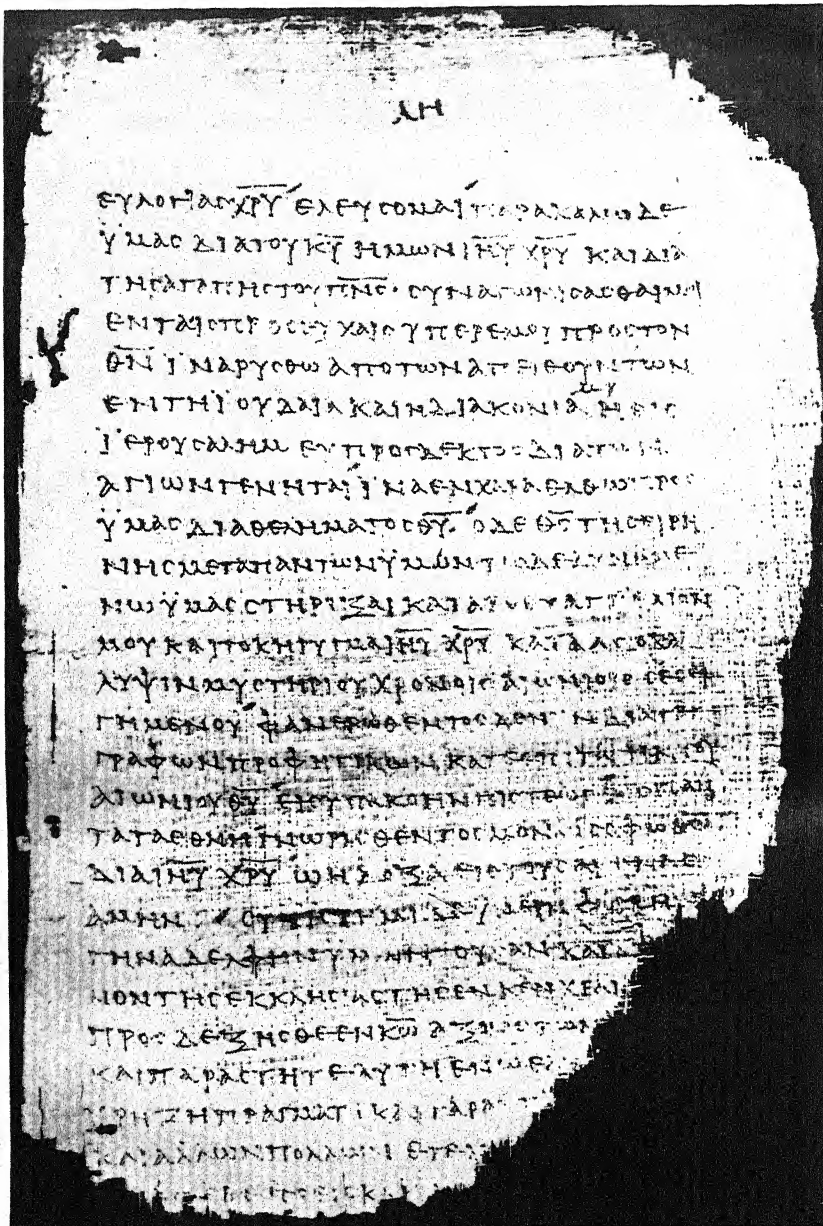 ΛΗ
ΕΥΛΟΓΙΑΣ Χ̅Ρ̅Υ̅ ΕΛΕΥΣΟΜΑΙ ΠΑΡΑΚΑΛΩ ΔΕ
ΫΜΑΣ ΔΙΑ ΤΟΥ Κ̅Υ̅ ΗΜΩΝ Ι̅Η̅Υ̅ Χ̅Ρ̅Υ̅ ΚΑΙ ΔΙΑ
ΤΗΣ ΑΓΑΠΗΣ ΤΟΥ Π̅Ν̅Σ̅· ΣΥΝΑΓΩΝΙΣΑΣΘΑΙ ΜΟΙ
ΕΝ ΤΑΙΣ ΠΡΟΣΕΥΧΑΙΣ ΥΠΕΡ ΕΜΟΥ ΠΡΟΣ ΤΟΝ
Θ̅Ν̅ ΪΝΑ ΡΥΣΘΩ ΑΠΟ ΤΩΝ ΑΠΕΙΘΟΥΝΤΩΝ
ΕΝ ΤΗ ΪΟΥΔΑΙΑ ΚΑΙ Η ΔΙΑΚΟΝΙΑ ΜΟΥ Η ΕΙΣ
ΪΕΡΟΥΣΑΛΗΜ ΕΥΠΡΟΣΔΕΚΤΟΣ ΔΙΑ ΤΩΝ
ΑΓΙΩΝ ΓΕΝΗΤΑΙ ΪΝΑ ΕΝ ΧΑΡΑ ΕΛΘΩ ΠΡΟΣ
ΫΜΑΣ ΔΙΑ ΘΕΛΗΜΑΤΟΣ Θ̅Υ̅· Ο ΔΕ Θ̅Σ̅ ΤΗΣ ΕΙΡΗ
ΝΗΣ ΜΕΤΑ ΠΑΝΤΩΝ ΫΜΩΝ ΤΩ ΔΕ ΔΥΝΑΜΕ
ΝΩ ΫΜΑΣ ΣΤΗΡΙΞΑΙ ΚΑΤΑ ΤΟ ΕΥΑΓΓΕΛΙΟΝ
ΜΟΥ ΚΑΙ ΤΟ ΚΗΡΥΓΜΑ Ι̅Η̅Υ̅ Χ̅Ρ̅Υ̅ ΚΑΤΑ ΑΠΟΚΑ
ΛΥΨΙΝ ΜΥΣΤΗΡΙΟΥ ΧΡΟΝΟΙΣ ΑΙΩΝΙΟΙΣ ΣΕΣΕΙ
ΓΗΜΕΝΟΥ ΦΑΝΕΡΩΘΕΝΤΟΣ ΔΕ ΝΥΝ ΔΙΑ ΤΕ
ΓΡΑΦΩΝ ΠΡΟΦΗΤΙΚΩΝ ΚΑΤ ΕΠΙΤΑΓΗΝ ΤΟΥ
ΑΙΩΝΙΟΥ Θ̅Υ̅ ΕΙΣ ΥΠΑΚΟΗΝ ΠΙΣΤΕΩΣ ΕΙΣ ΠΑΝ
ΤΑ ΤΑ ΕΘΝΗ ΓΝΩΡΙΣΘΕΝΤΟΣ ΜΟΝΩ ΣΟΦΩ Θ̅Ω̅
ΔΙΑ Ι̅Η̅Υ̅ Χ̅Ρ̅Υ̅ Ω Η ΔΟΞΑ ΕΙΣ ΤΟΥΣ ΑΙΩΝΑΣ
ΑΜΗΝ ΣΥΝΙΣΤΗΜΙ ΔΕ
ΤΗΝ ΑΔΕΛΦΗΝ ΫΜΩΝ ΟΥΣΑΝ ΚΑΙ
ΝΟΝ ΤΗΣ ΕΚΚΛΗΣΙΑΣ ΤΗΣ ΕΝ ΚΕΝΧΡΕΑΙ
ΠΡΟΣΔΕΞΗΣΘΕ ΕΝ Κ̅Ω̅ ΑΞΙΩΣ ΤΩΝ
ΚΑΙ ΠΑΡΑΣΤΗΤΕ ΑΥΤΗ ΕΝ Ω Ε
ΧΡΗΖΗ ΠΡΑΓΜΑΤΙ ΚΑΙ ΓΑΡ Α
ΚΑΙ ΑΛΛΩΝ ΠΟΛΛΩΝ